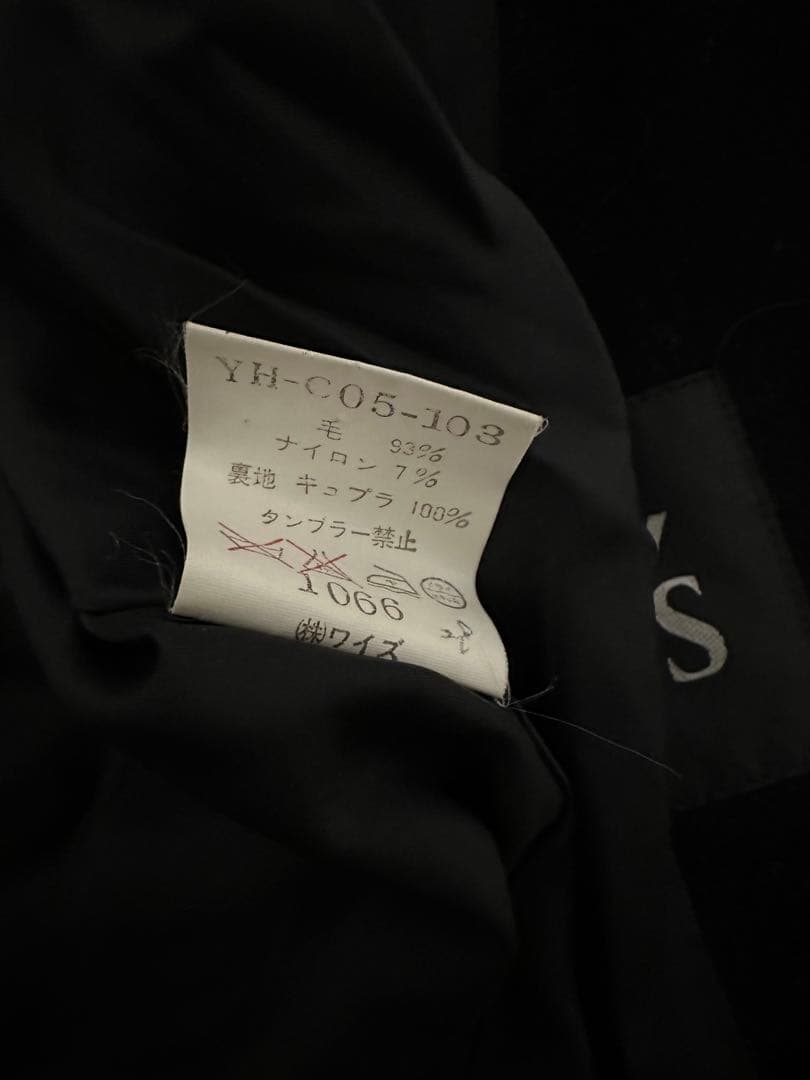 YH-C05-103
毛 93%
ナイロン 7%
裏地 キュプラ 100%
タンブラー禁止
1066
㈱ワイズ
S